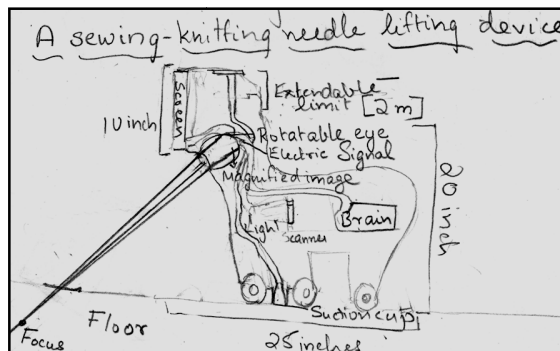 A sewing-knitting needle lifting device
Screen
10 inch
Extendable
limit [2 m]
Rotatable eye
Electric Signal
Magnified image
Brain
Light
Scanner
20 inch
Suction cup
Floor
Focus
25 inches